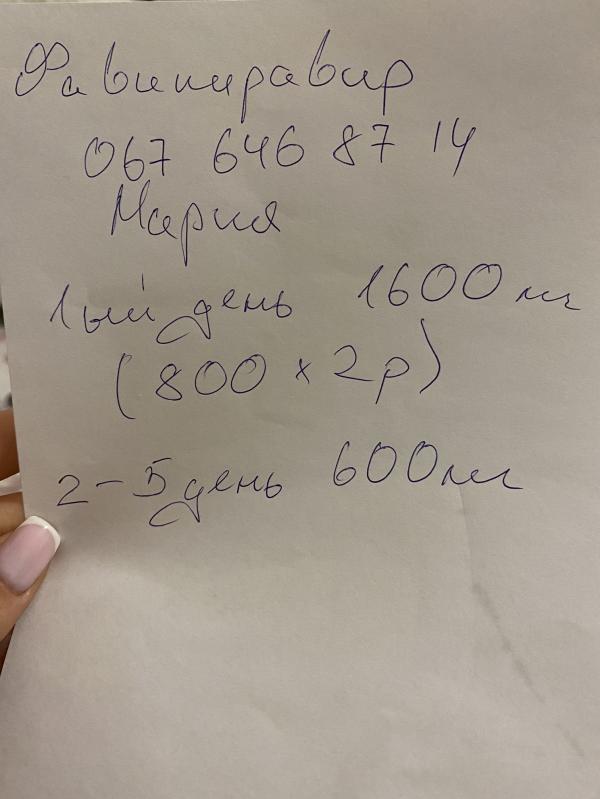 Фавипиравир
067 646 87 14
Мария
1ый день 1600 мг
(800 × 2р)
2-5 день 600 мг